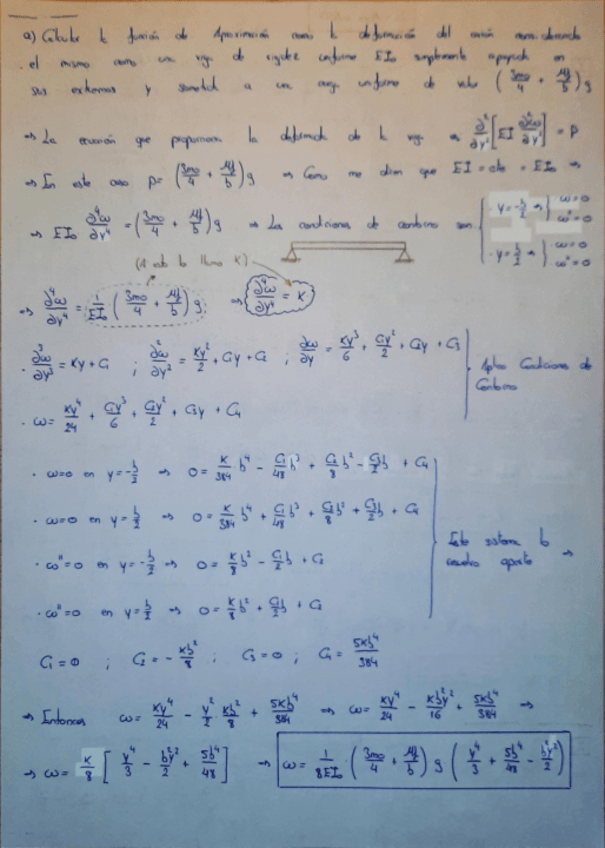 a) Calcular la función de Aproximación como la deformación del avión considerando
el mismo como una viga de rigidez uniforme EI₀ simplemente apoyada en
sus extremos y sometida a una carga uniforme de valor (3m₀/4 + Mf/b) g
⇒ La ecuación que proporciona la deformada de la viga es ∂²/∂y² [EI ∂²ω/∂y²] = P
⇒ En este caso P = (3m₀/4 + Mf/b) g ⇒ Como me dicen que EI = cte = EI₀ ⇒
⇒ EI₀ ∂⁴ω/∂y⁴ = (3m₀/4 + Mf/b) g ⇒ Las condiciones de contorno son { · y = -b/2 ⇒ } ω=0 ω''=0 · y = b/2 ⇒ } ω=0 ω''=0
(A esto lo llamo K)
⇒ ∂⁴ω/∂y⁴ = 1/EI₀ (3m₀/4 + Mf/b) g ⇒ ∂⁴ω/∂y⁴ = K
· ∂³ω/∂y³ = Ky + C₁ ; ∂²ω/∂y² = Ky²/2 + C₁y + C₂ ; ∂ω/∂y = Ky³/6 + C₁y²/2 + C₂y + C₃
Aplico Condiciones de
Contorno
· ω = Ky⁴/24 + C₁y³/6 + C₂y²/2 + C₃y + C₄
· ω=0 en y=-b/2 ⇒ 0 = K/384 b⁴ - C₁/48 b³ + C₂/8 b² - C₃/2 b + C₄
· ω=0 en y=b/2 ⇒ 0 = K/384 b⁴ + C₁/48 b³ + C₂/8 b² + C₃/2 b + C₄
Este sistema lo
resuelvo aparte ⇒
· ω''=0 en y=-b/2 ⇒ 0 = K/8 b² - C₁/2 b + C₂
· ω''=0 en y=b/2 ⇒ 0 = K/8 b² + C₁/2 b + C₂
C₁=0 ; C₂ = -Kb²/8 ; C₃=0 ; C₄ = 5Kb⁴/384
⇒ Entonces ω = Ky⁴/24 - y²/2 · Kb²/8 + 5Kb⁴/384 ⇒ ω = Ky⁴/24 - Kb²y²/16 + 5Kb⁴/384 ⇒
⇒ ω = K/8 [ y⁴/3 - b²y²/2 + 5b⁴/48 ] ⇒ ω = 1/8EI₀ · (3m₀/4 + Mf/b) g (y⁴/3 + 5b⁴/48 - b²y²/2)